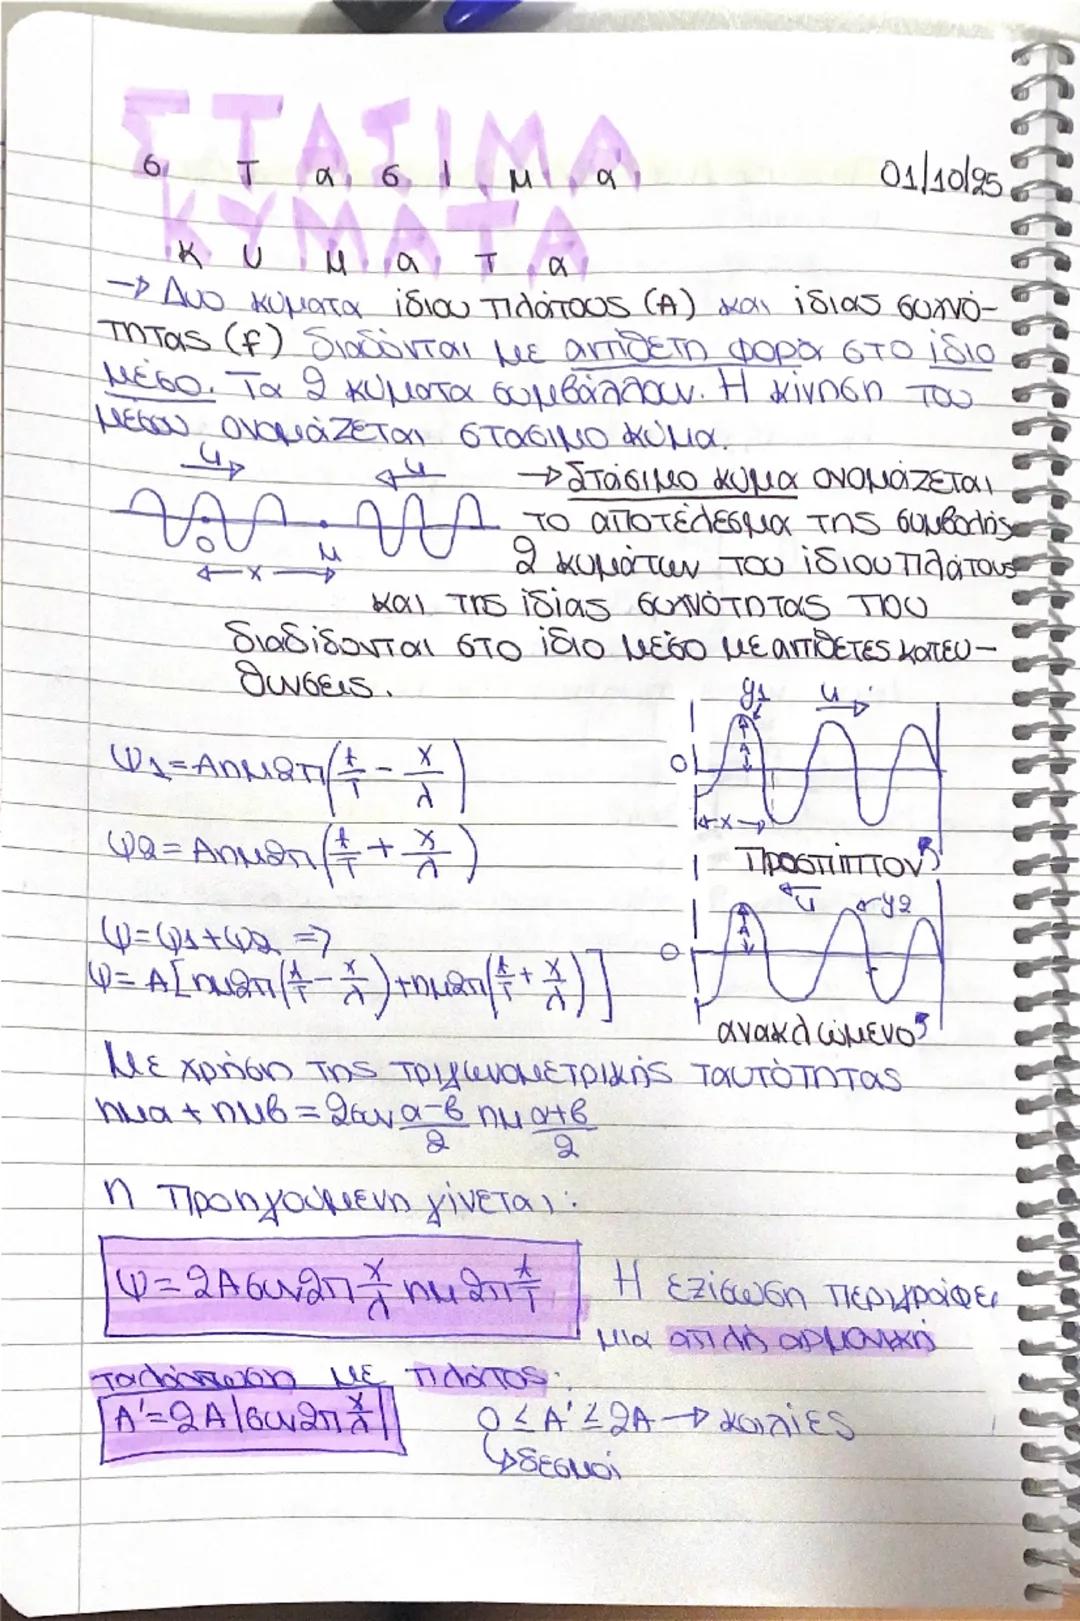 ΣΤΑΣΙΜΑ
στασιμα
01/10/25
ΚΥΜΑΤΑ
κυματα
→ Δυο κύματα ίδιου πλάτους (Α) και ίδιας συχνό-
τητας (f) διαδίδονται με αντίθετη φορά στο ίδιο
μέσο. Τα 2 κύματα συμβάλλουν. Η κίνηση του
μέσου ονομάζεται στάσιμο κύμα.
u u
→ Στάσιμο κύμα ονομάζεται
το αποτέλεσμα της συμβολής
Ο Μ
x
2 κυμάτων του ίδιου πλάτους
και της ίδιας συχνότητας που
διαδίδονται στο ίδιο μέσο με αντίθετες κατευ-
θύνσεις.
y1 u
Ο A
x
Προσπίπτον
ψ1=Αημ2π(t/T - x/λ)
ψ2=Αημ2π(t/T + x/λ)
u y2
Ο A
ανακλώμενο
ψ=ψ1+ψ2 =>
ψ=Α[ημ2π(t/T - x/λ)+ημ2π(t/T + x/λ)]
Με χρήση της τριγωνομετρικής ταυτότητας
ημα+ημβ=2συν α-β/2 ημ α+β/2
η προηγούμενη γίνεται:
ψ=2Ασυν2π x/λ ημ2π t/T
Η εξίσωση περιγράφει
μια απλή αρμονική
ταλάντωση με πλάτος:
Α'=2Α|συν2π x/λ|
0≤Α'≤2Α → κοιλίες
↳ δεσμοί